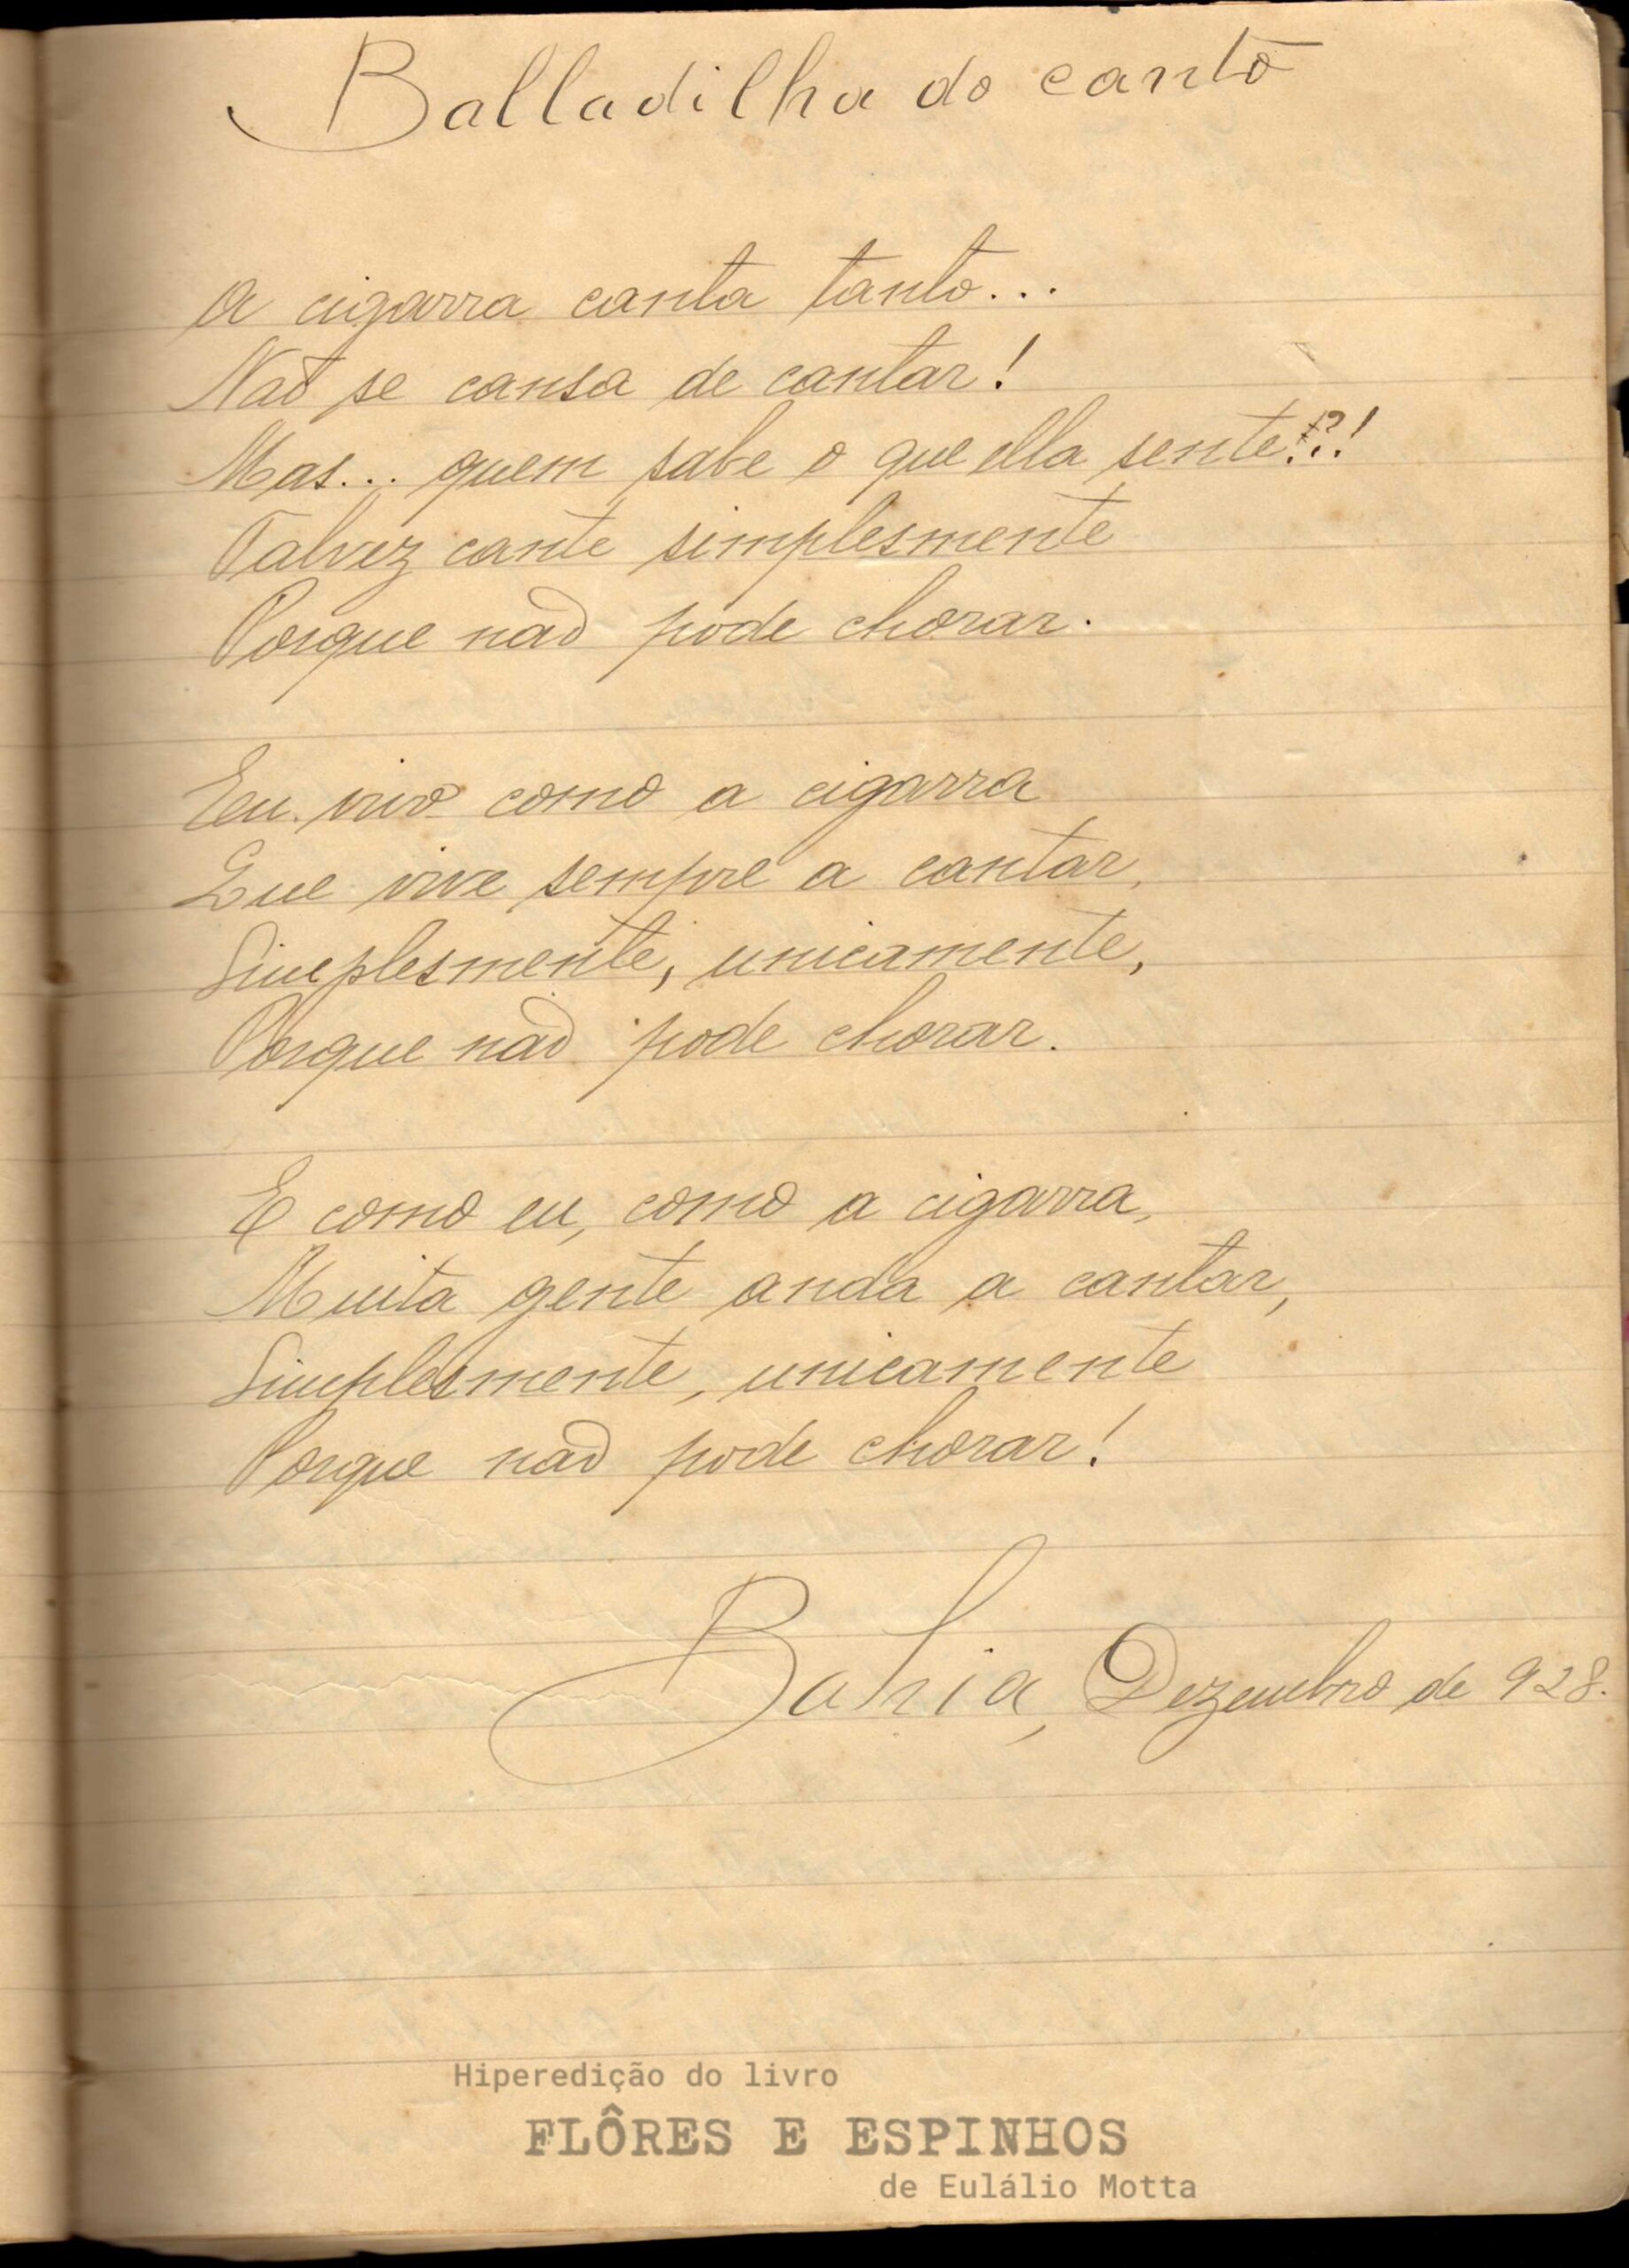 Balladilha do canto
A cigarra canta tanto...
Não se cansa de cantar!
Mas... quem sabe o que ella sente!?!
Talvez cante simplesmente
Porque não pode chorar.
Eu vivo como a cigarra
Que vive sempre a cantar,
Simplesmente, unicamente,
Porque não pode chorar.
E como eu, como a cigarra,
Muita gente anda a cantar,
Simplesmente, unicamente
Porque não pode chorar!
Bahia, Dezembro de 928.
Hiperedição do livro
FLÔRES E ESPINHOS
de Eulálio Motta